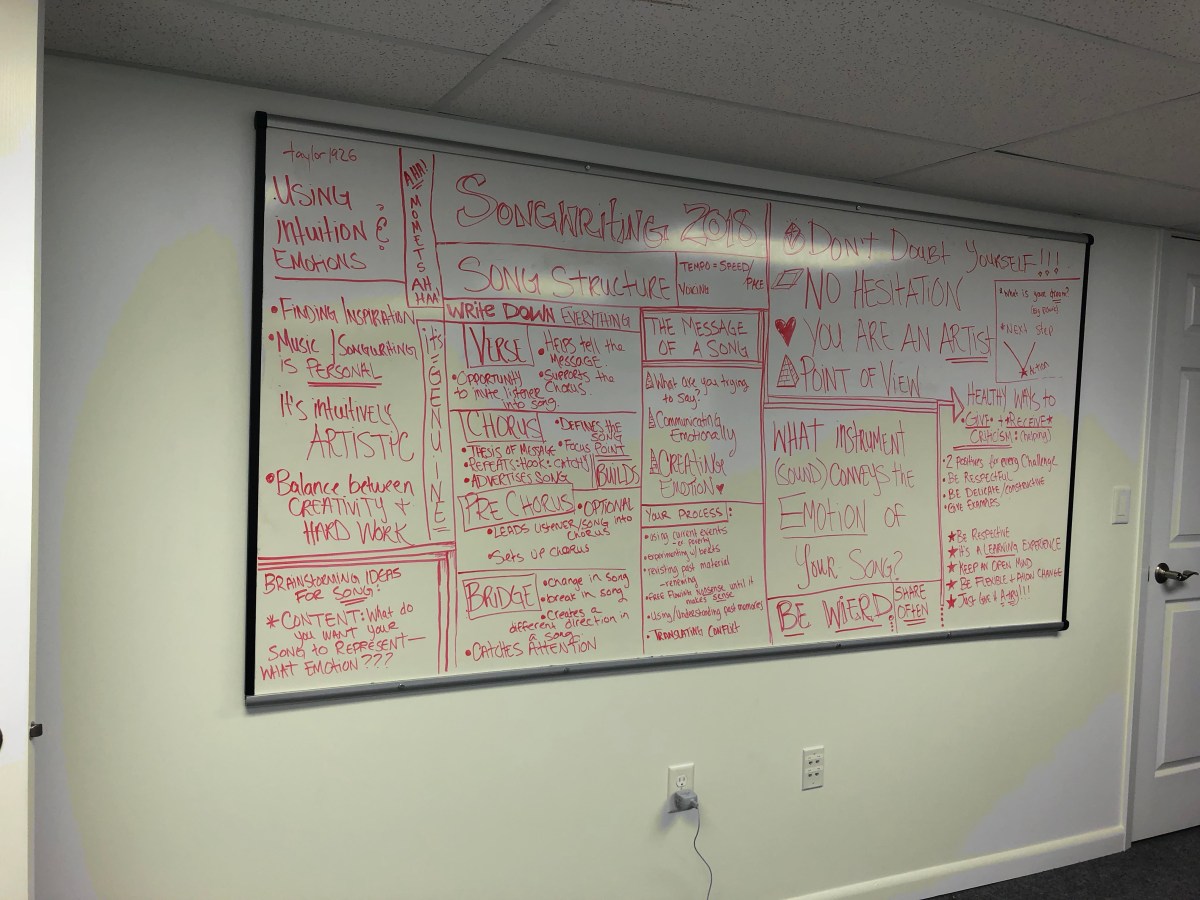 taylor1926
USING
intuition &
EMOTIONS
AHA!
MOMETS
AH
HAA!
• FINDING INSPIRATION
• MUSIC / SONGWRITING
IS PERSONAL
It's intuitively
ARTISTIC
• Balance between
CREATIVITY +
HARD WORK
it's
GENUINE
BRAINSTORMING IDEAS
FOR SONG:
* CONTENT: What do
you want your
SONG to REPRESENT—
WHAT EMOTION???
SONGWRITING 2018
SONG STRUCTURE
TEMPO = SPEED/
PACE
VOICING
WRITE DOWN EVERYTHING
VERSE
• HELPS tell the
MESSAGE
• OPPORTUNITY
to invite listener
into song.
• Supports the
Chorus.
CHORUS
• DEFINES THE
SONG
• FOCUS POINT
• THESIS OF MESSAGE
• REPEATS: HOOK: CATCHY!
• ADVERTISES SONG
BUILDS
PRE CHORUS
• OPTIONAL
• LEADS LISTENER/SONG into
CHORUS
• Sets up CHORUS
BRIDGE
• change in song
• break in song?
• Creates a
different direction in
a song.
• CATCHES ATTENTION
THE MESSAGE
OF A SONG
What are you trying
to Say?
Communicating
Emotionally
CREATING
EMOTION
YOUR PROCESS:
• using current events
• experimenting w/ beats
• revisiting past material
- renewing
• FREE FlowiNg nonsense until it
makes sense
• Using/Understanding past memories
• TRANSLATING CONFLICT
DON'T DOUBT YOURSELF!!!
NO HESITATION
YOU ARE AN ARTIST
POINT OF VIEW
• What is your dream?
* NEXT step
* Action
WHAT instrument
(sound) CONVEYS the
EMOTION of
Your SONG?
BE WIERD
SHARE
OFTEN
HEALTHY WAYS to
• GIVE • + * RECEIVE *
CRITICISM: (helping)
• 2 Positives for every Challenge
• BE RESPECTFUL
• BE DELICATE/CONSTRUCTIVE
• GIVE EXAMPLES
★ BE RESPECTIVE
★ It's A LEARNING EXPERIENCE
★ KEEP AN OPEN MIND
★ BE FLEXIBLE CHANGE
★ Just Give it A-try!!!